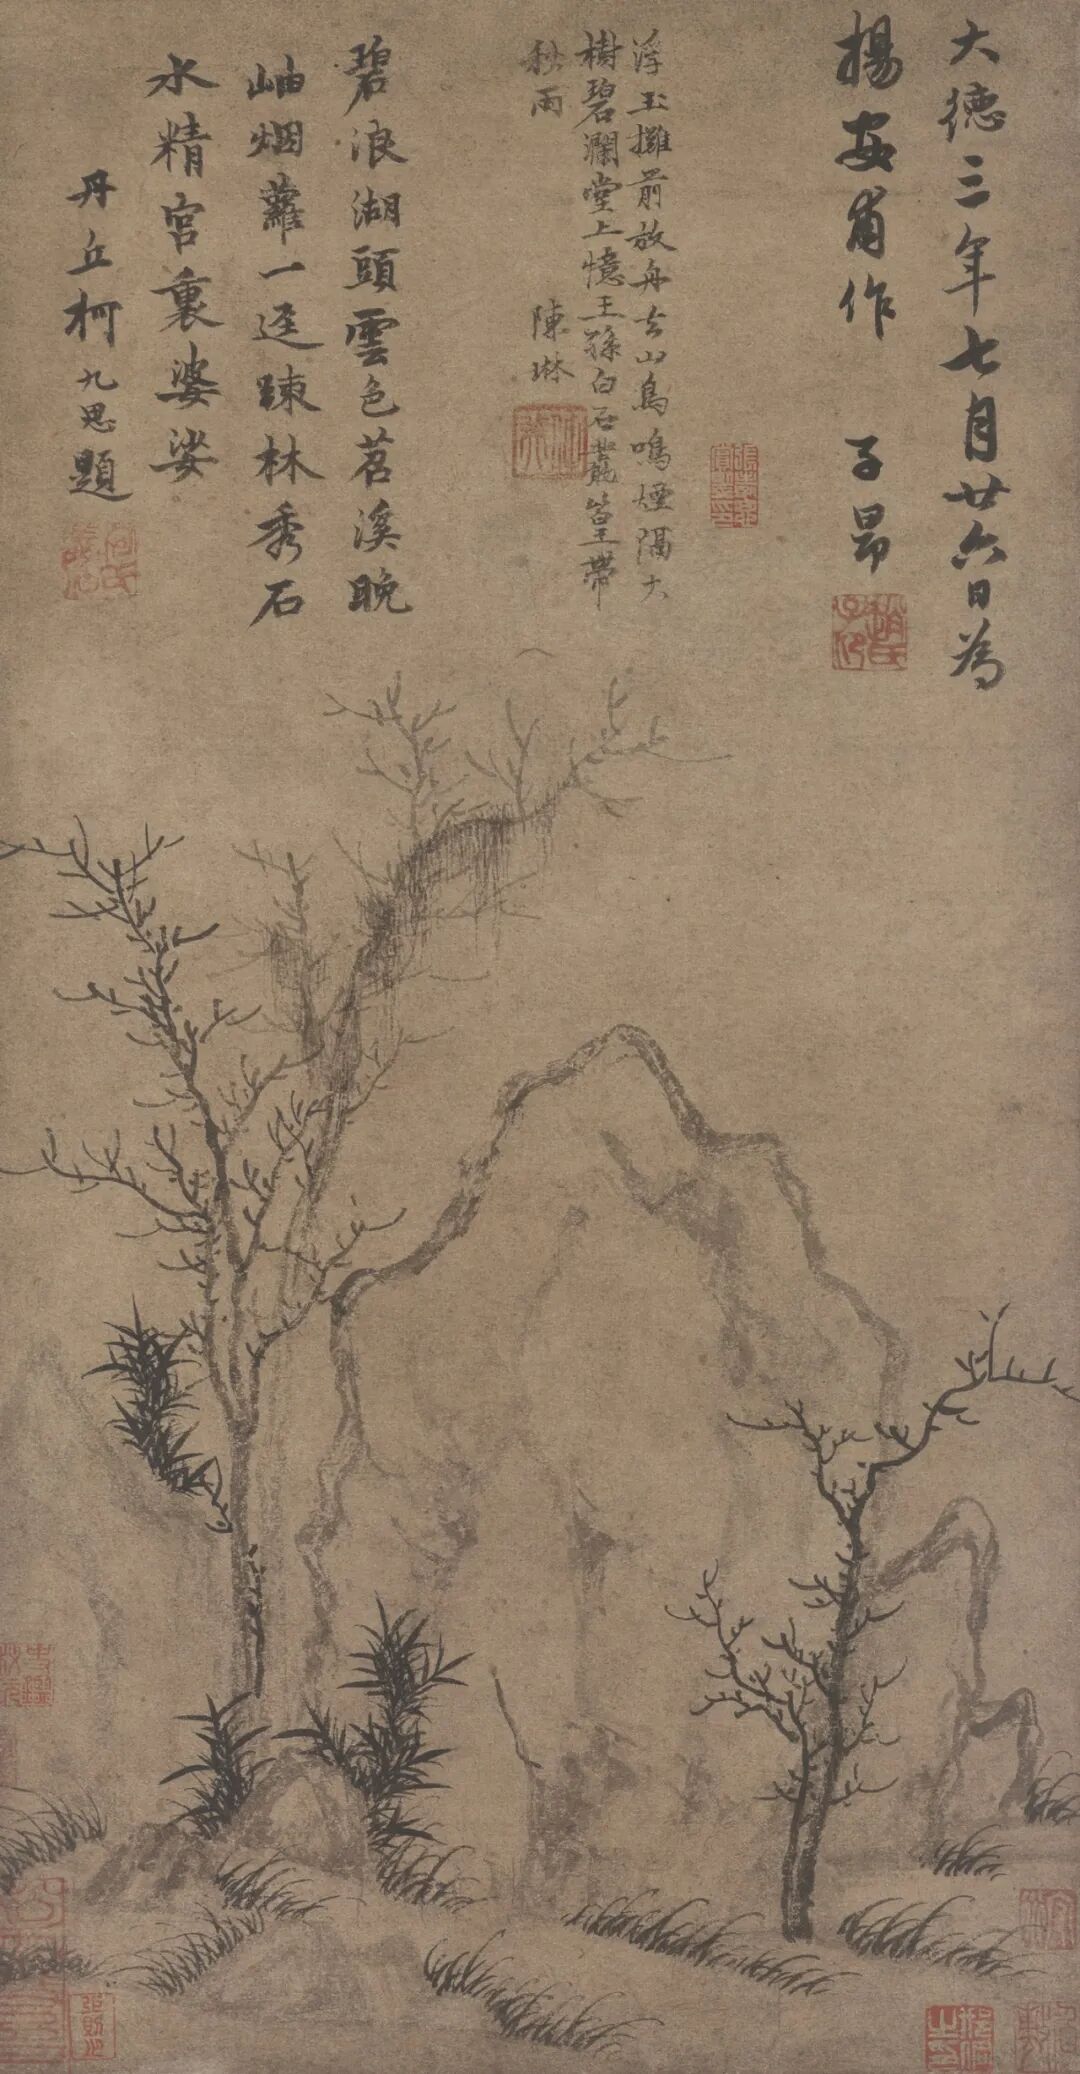 大德三年七月廿六日為
楊安甫作　子昂
趙氏子印
浮玉攤前放舟去山鳥鳴煙隔大
樹碧瀾堂上憶王孫白石叢篁帶
秋雨　陳琳
碧浪湖頭雲色苕溪晚
岫烟蘿一逕踈林秀石
水精宮裏婆娑
丹丘柯九思題